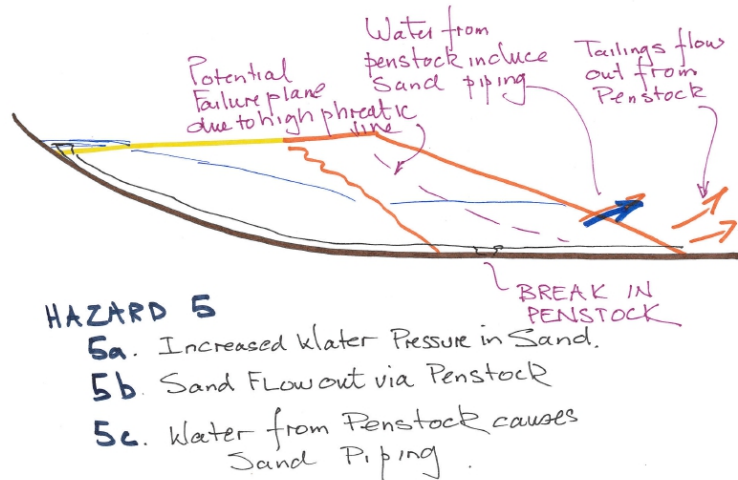 Potential
Failure plane
due to high phreatic
line
Water from
penstock include
Sand piping
Tailings flow
out from
Penstock
BREAK IN
PENSTOCK
HAZARD 5
5a. Increased Water Pressure in Sand.
5b. Sand Flow out via Penstock
5c. Water from Penstock causes
Sand Piping.